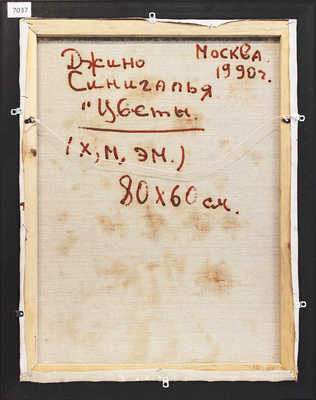 7037
Джино
Синигалья
"Цветы.
Москва.
1990г.
(х, м, эм.)
80х60 см.